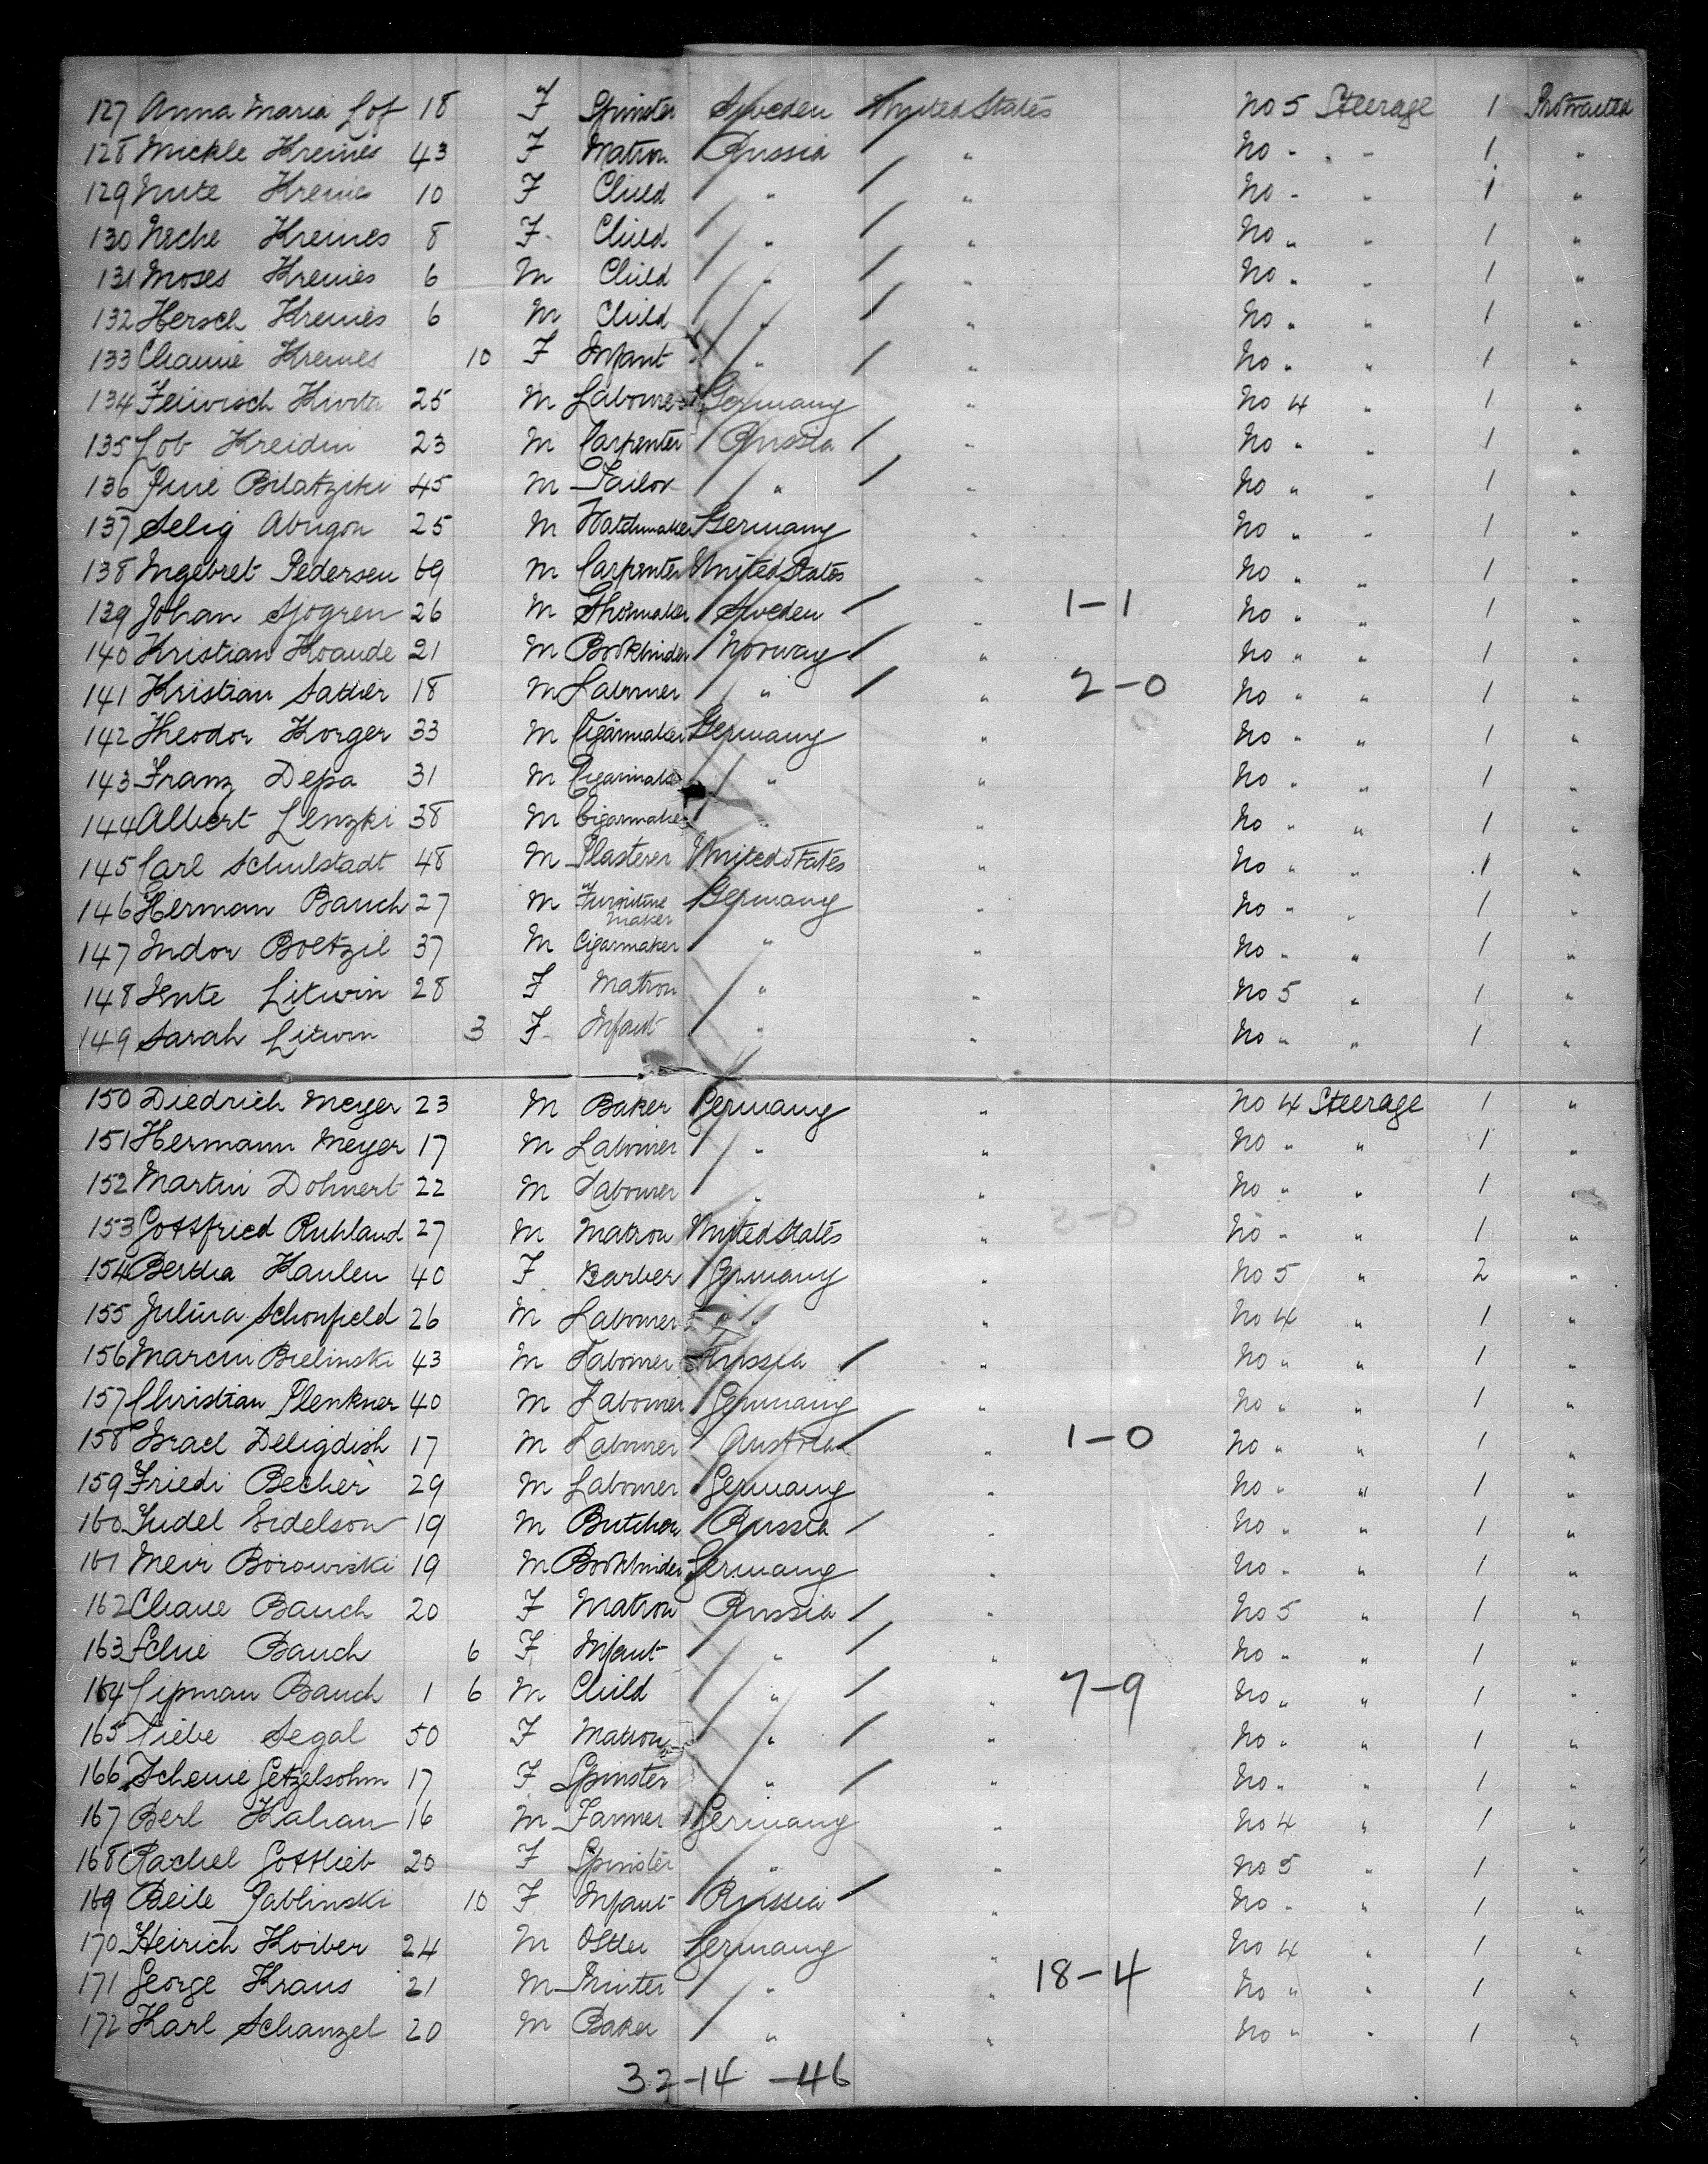 127 Anna Maria Lof 18 F Spinster Sweden United States No 5 Steerage 1 Protracted
128 Mickle Kreines 43 F Matron Russia " No " " 1 "
129 Mute Kreines 10 F Child " " No " " 1 "
130 Esche Kreines 8 F Child " " No " " 1 "
131 Moses Kreines 6 M Child " " No " " 1 "
132 Hersch Kreines 6 M Child " " No " " 1 "
133 Chanie Kreines 10 F Infant " " No " " 1 "
134 25 M Labourer Germany " No 4 " 1 "
135 Lob Kreidin 23 M Carpenter Russia " No " " 1 "
136 45 M Tailor " " No " " 1 "
137 Selig Abugon 25 M Watchmaker Germany " No " " 1 "
138 Ingebret Pedersen 69 M Carpenter United States " No " " 1 "
139 Johan Sjogren 26 M Shoemaker Sweden " 1-1 No " " 1 "
140 Kristian Koaude 21 M Bookbinder Norway " No " " 1 "
141 Kristian Sather 18 M Labourer " " 2-0 No " " 1 "
142 Theodor Korger 33 M Cigarmaker Germany " No " " 1 "
143 Franz Depa 31 M Cigarmaker " " No " " 1 "
144 Albert Lenzki 38 M Cigarmaker " " No " " 1 "
145 Carl Schulstadt 48 M Plasterer United States " No " " 1 "
146 Herman Bauch 27 M Furniture Maker Germany " No " " 1 "
147 Indor Boltzil 37 M Cigarmaker " " No " " 1 "
148 Hente Litwin 28 F Matron " " No 5 " 1 "
149 Sarah Litwin 3 F Infant " " No " " 1 "
150 Diedrich Meyer 23 M Baker Germany " No 4 Steerage 1 "
151 Hermann Meyer 17 M Labourer " " No " " 1 "
152 Martin Dohnert 22 M Labourer " " No " " 1 "
153 Gottfried Ruhland 27 M Matron United States " 3-0 No " " 1 "
154 Bertha Kaulen 40 F Barber Germany " No 5 " 2 "
155 Julina Schonfield 26 M Labourer " " No 4 " 1 "
156 Marcin Bielinski 43 M Labourer Russia " No " " 1 "
157 Christian Plenkner 40 M Labourer Germany " No " " 1 "
158 Israel Deligdish 17 M Labourer Austria " 1-0 No " " 1 "
159 Friedi Becher 29 M Labourer Germany " No " " 1 "
160 Judel Eidelson 19 M Butcher Russia " No " " 1 "
161 Meir Borowiski 19 M Bookbinder Germany " No " " 1 "
162 Chane Bauch 20 F Matron Russia " No 5 " 1 "
163 Bauch 6 F Infant " " No " " 1 "
164 Lipman Bauch 1 6 M Child " " 7-9 No " " 1 "
165 Liebe Segal 50 F Matron " " No " " 1 "
166 Scheine Getzelsohm 17 F Spinster " " No " " 1 "
167 Berl Kahan 16 M Farmer Germany " No 4 " 1 "
168 Rachel Gottlieb 20 F Spinster " " No 5 " 1 "
169 Beile Jablinski 10 F Infant Russia " No " " 1 "
170 Heirich Koiber 24 M Ostler Germany " No 4 " 1 "
171 George Kraus 21 M Printer " " 18-4 No " " 1 "
172 Karl Schanzel 20 M Baker " " No " " 1 "
32-14-46